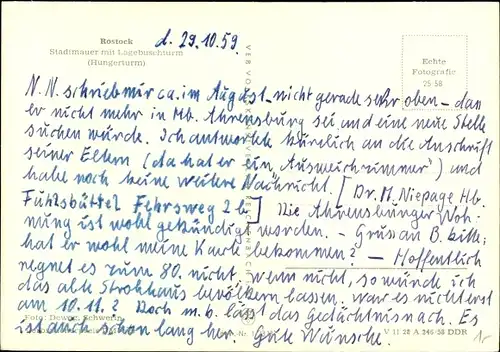 Rostock
Stadtmauer mit Lagebuschturm
(Hungerturm)
d. 29.10.59
Echte
Fotografie
25 58
N.N. schrieb mir ca. im August - nicht gerade sehr oben - dass
er nicht mehr in Mb. Ahrensburg sei und eine neue Stelle
suchen würde. Ich antwortete kürzlich an die Anschrift
seiner Eltern (da hat er ein "Ausweichzimmer") und
habe noch keine weitere Nachricht. [Dr. M. Niepage Hb.
Fuhlsbüttel Fehrsweg 2b.] Die Ahrensburger Woh-
nung ist wohl gekündigt worden. - Gruss an B. bitte;
hat er wohl meine Karte bekommen? - Hoffentlich
regnet es zum 80. nicht, wenn nicht, so würde ich
das alte Strohhaus bevölkern lassen, war es nicht erst
am 10.11.? Doch m. b. lässt das Gedächtnis nach. Es
ist auch schon lang her. Gute Wünsche.
Foto: Dewag, Schwerin
V 11 28 A 246/58 DDR